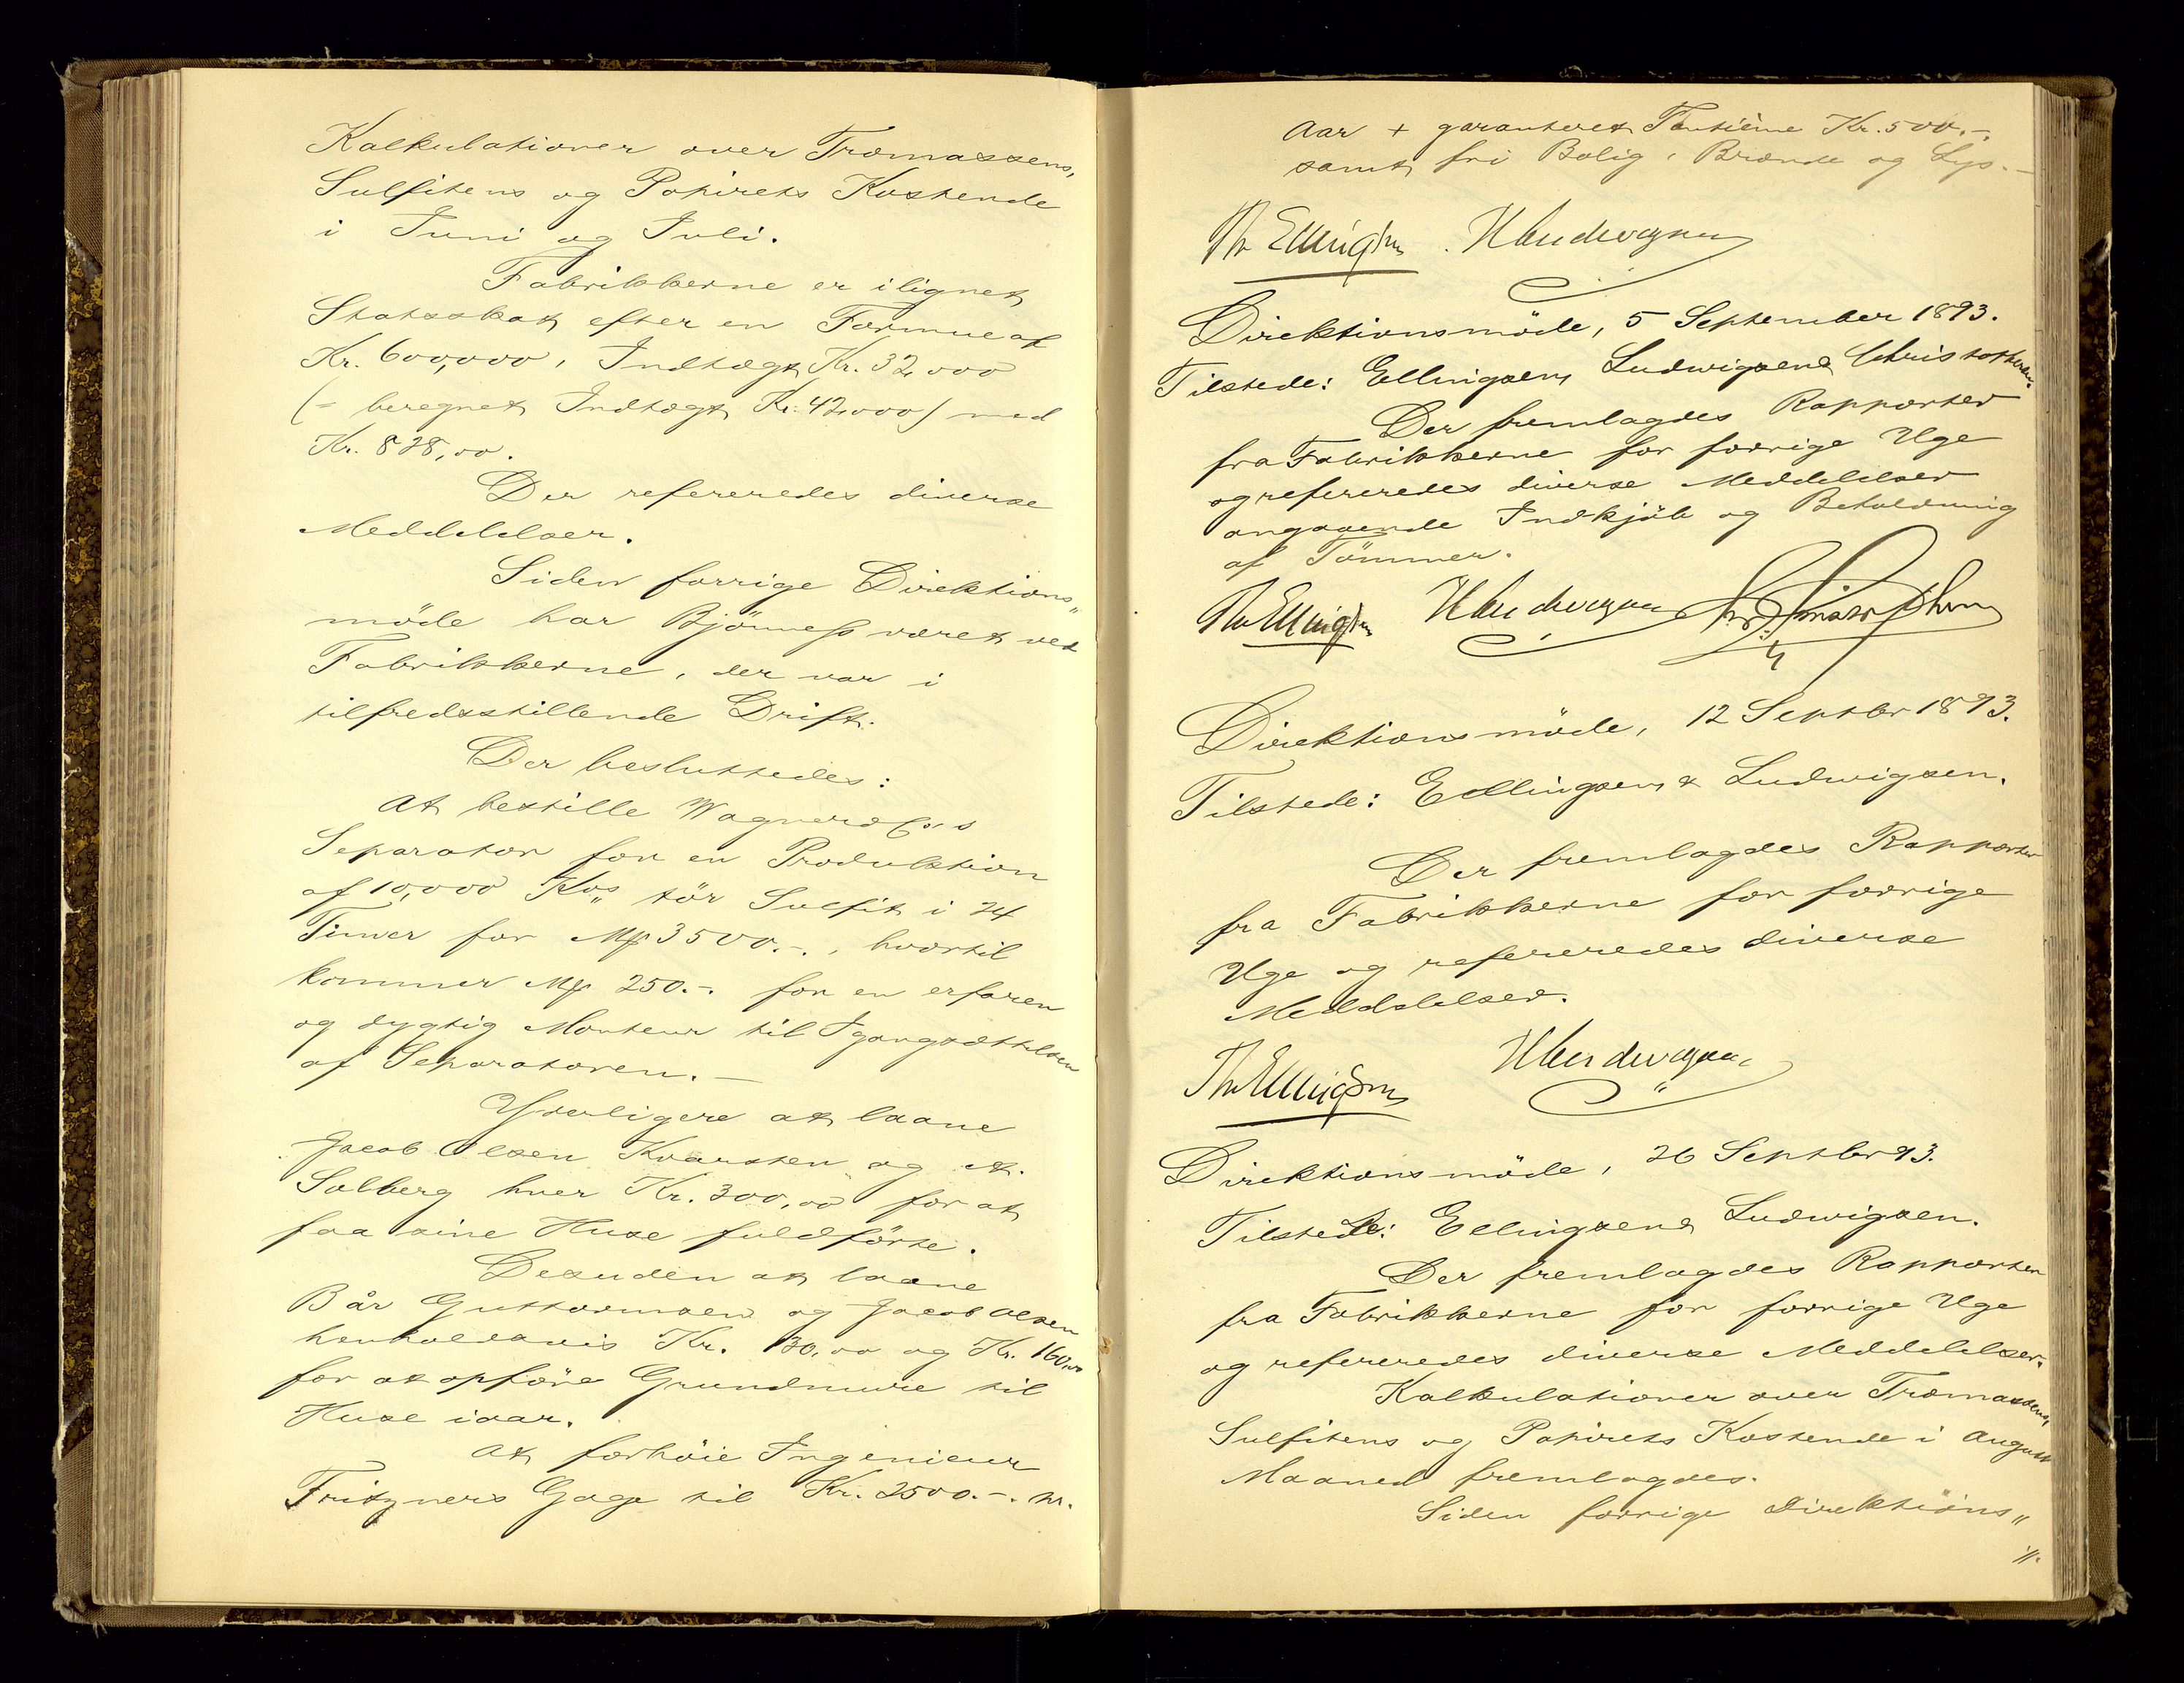 Kalkulationer over Træmassens,
Sulfitens og Papirets Kostende
i Juni og Juli.
Fabrikkerne er ilignet
Statsskat efter en Formue af
Kr. 600,000, Indtægt Kr. 32,000
(- beregnet Indtægt Kr. 42,000) med
Kr. 828,00.
Der refereredes diverse
Meddelelser.
Siden forrige Direktions„
möde har Bjönness været ved
Fabrikkerne, der var i
tilfredsstillende Drift.
Der besluttedes:
At bestille Wagner & Cos
Separator for en Produktion
af 10,000 Kos„ tör Sulfit i 24
Timer for Mk 3500.-, hvortil
kommer Mk 250.-. for en erfaren
og dygtig Monteur til Igangsættelsen
af Separatoren. -
Yderligere at laane
Jacob Olsen Kvarsten og A.
Solberg hver Kr. 300,00 for at
faa sine Huse fuldförte.
Desuden at laane
Bår Guttormsen og Jacob Olsen
henholdsvis Kr. 130,00 og Kr. 160,00
for at opföre Grundmure til
Huse iaar.
At forhöie Ingenieur
Fritzners Gage til Kr. 2500.-. pr.
Aar + garanteret Tantième Kr. 500.-.
samt fri Bolig, Brænde og Lys. -
Th Ellingsen. H Ludwigsen
Direktionsmöde, 5 September 1893.
Tilstede: Ellingsen, Ludwigsen & Christophersen.
Der fremlagdes Rapporter
fra Fabrikkerne for forrige Uge
og refereredes diverse Meddelelser
angaaende Indkjöb og Beholdning
af Tömmer.
Th Ellingsen H Ludwigsen
Direktionsmöde, 12 Septbr 1893.
Tilstede: Ellingsen & Ludwigsen.
Der fremlagdes Rapporter
fra Fabrikkerne for forrige
Uge og refereredes diverse
Meddelelser.
Th Ellingsen H Ludwigsen
Direktionsmöde, 26 Septbr 93.
Tilstede: Ellingsen & Ludwigsen.
Der fremlagdes Rapporter
fra Fabrikkerne for forrige Uge
og refereredes diverse Meddelelser.
Kalkulationer over Træmassens,
Sulfitens og Papirets Kostende i August
Maaned fremlagdes.
Siden forrige Direktions„
//.